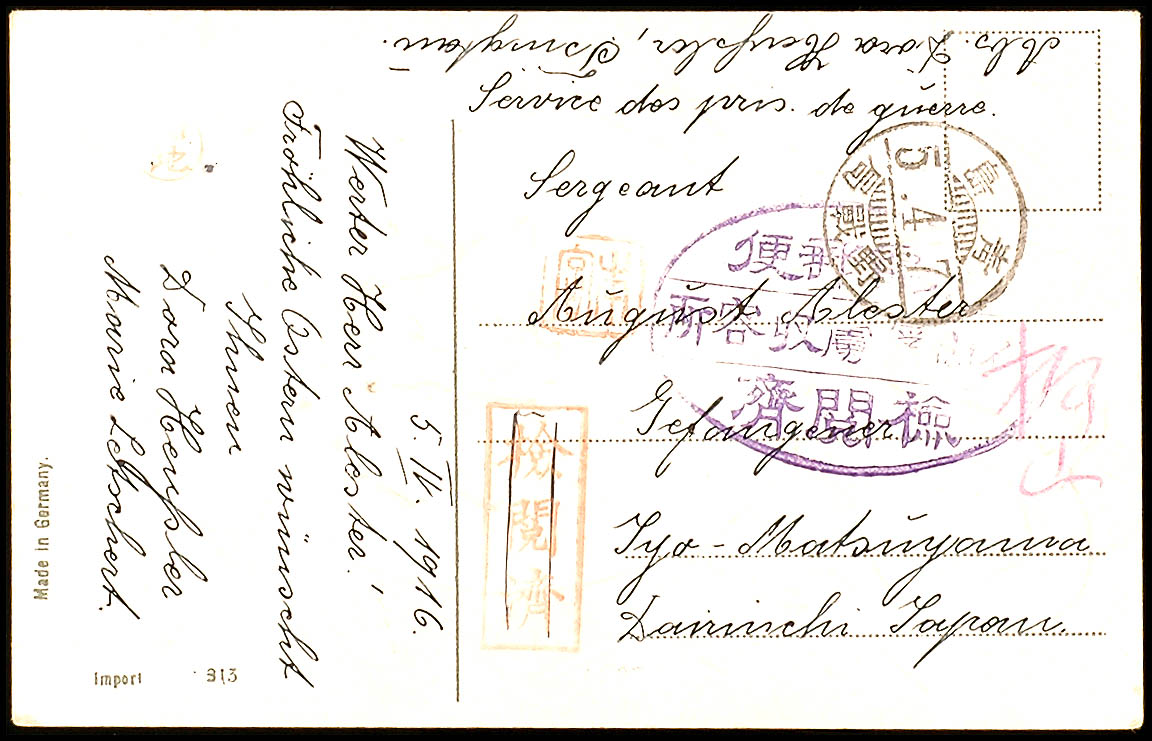 Abs. Dora Henßler, Tsingtau.
Service des pris. de guerre.
Sergeant
August Alester
Gefangener
Iyo-Matsuyama
Dairinchi Japan.
5. IV. 1916.
Werter Herr Alester!
Fröhliche Ostern wünscht
Ihnen
Dora Henßler
Marie Letschert.
Made in Germany.
Import 313
5.4.7
青島
郵便
收容所
檢閲濟
檢閲濟